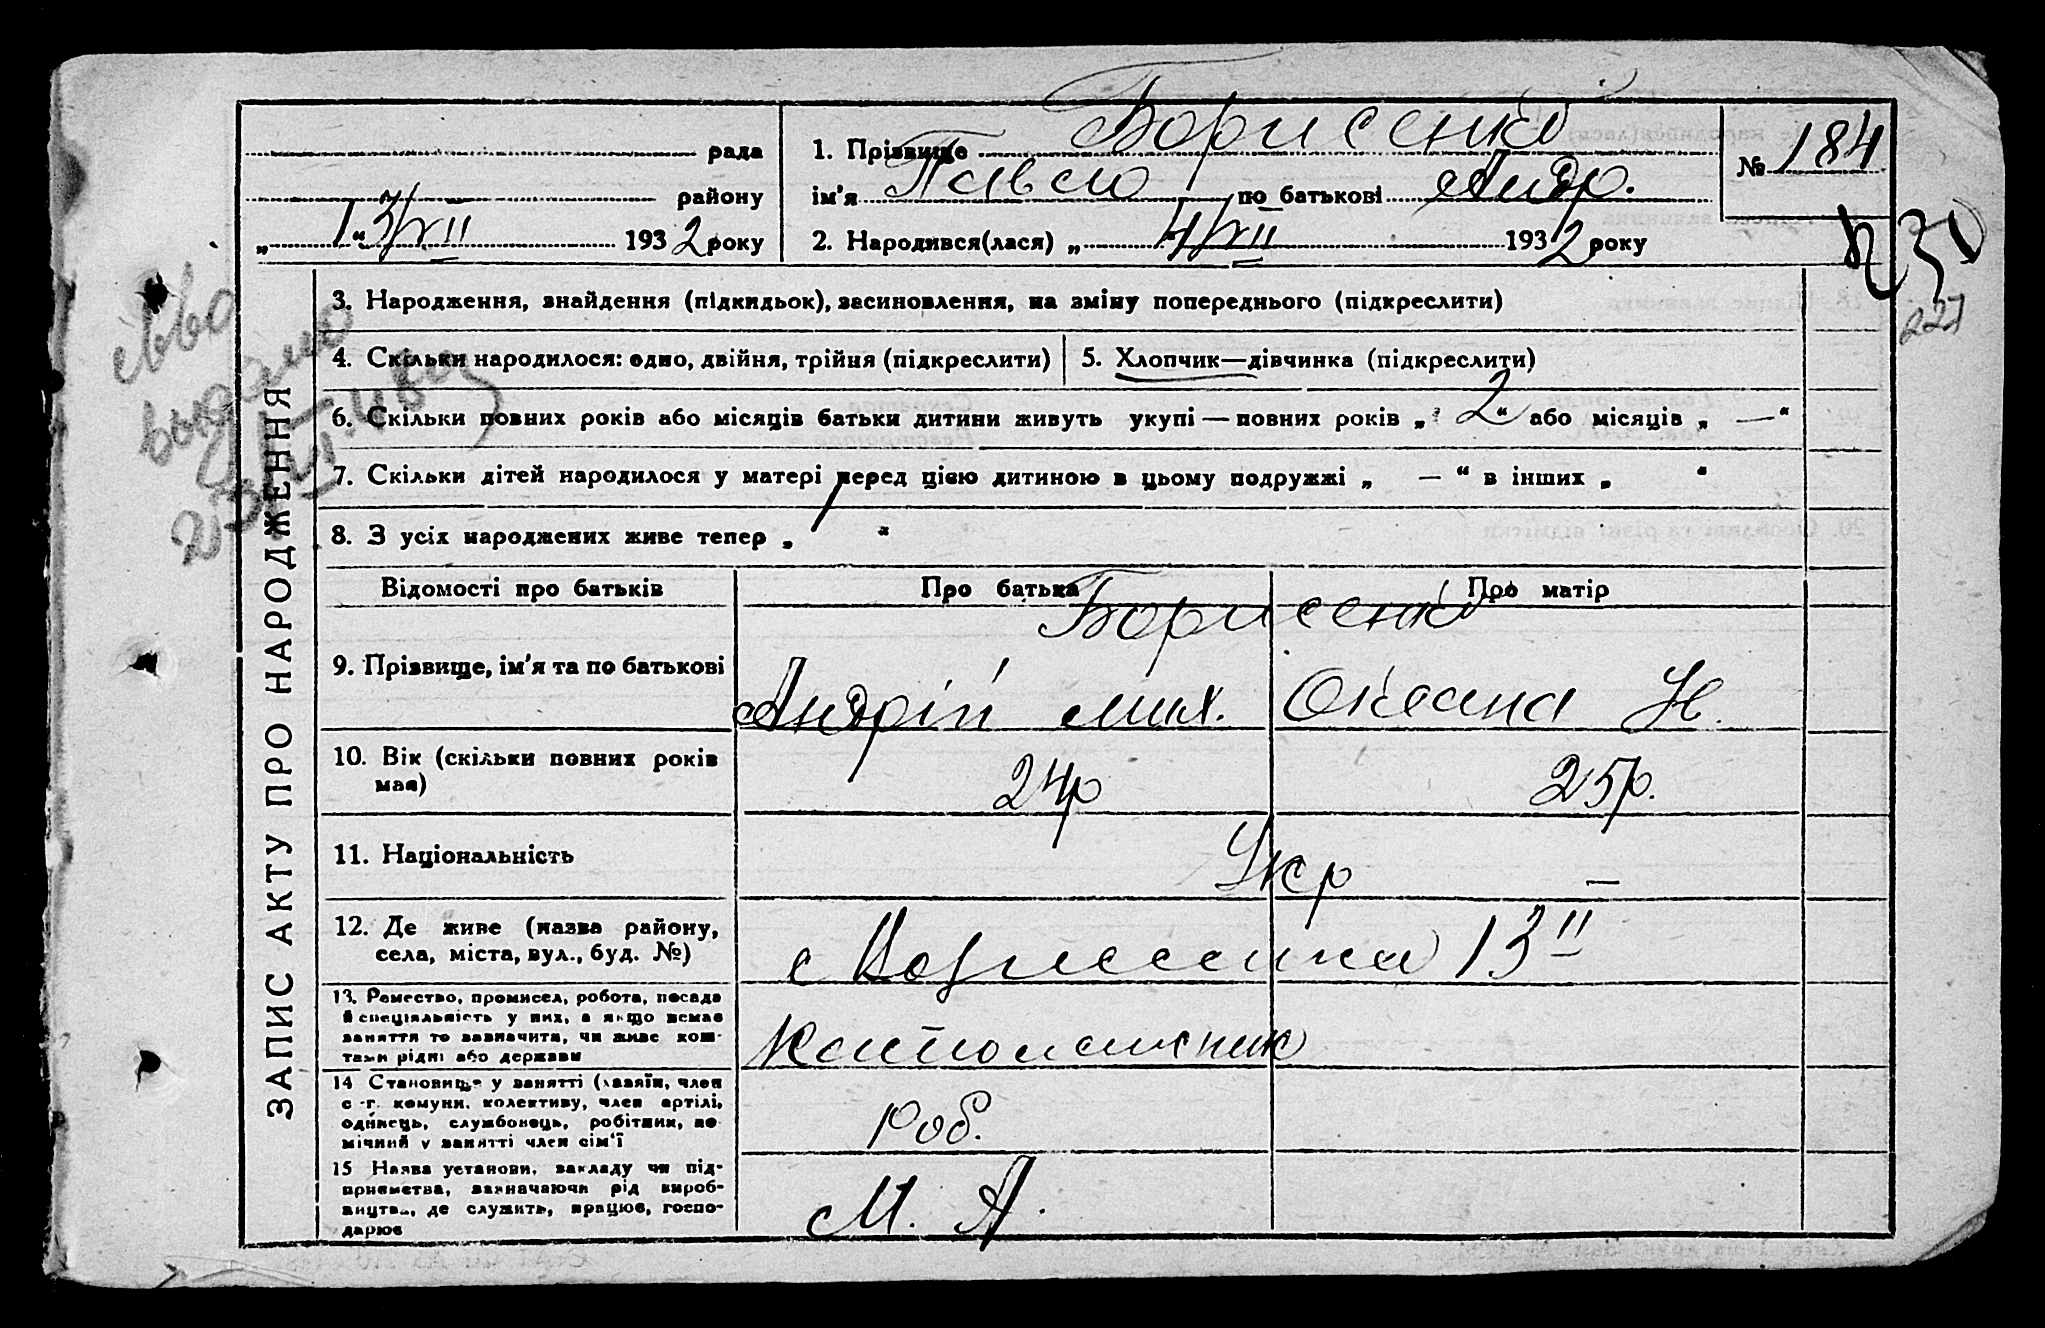 Борисенко
рада
1. Прізвище
№ 184
району
ім'я Павло по батькові Андр.
„13/VII 1932 року
2. Народився(лася) „4/VII 1932 року
227
3. Народження, знайдення (підкидьок), засиновлення, на зміну попереднього (підкреслити)
4. Скільки народилося: одно, двійня, трійня (підкреслити)
5. Хлопчик—дівчинка (підкреслити)
6. Скільки повних років або місяців батьки дитини живуть укупі — повних років „2“ або місяців „ — “
7. Скільки дітей народилося у матері перед цією дитиною в цьому подружжі „ — “ в інших „ “
8. З усіх народжених живе тепер „ “
ЗАПИС АКТУ ПРО НАРОДЖЕННЯ
Відомості про батьків
Про батька
Про матір
Борисенко
9. Прізвище, ім'я та по батькові
Андрій Мих.
Оксана Н.
10. Вік (скільки повних років
має)
24р
25р.
11. Національність
Укр —
12. Де живе (назва району,
села, міста, вул., буд. №)
13
13. Ремество, промисел, робота, посада
й спеціяльність у них, а якщо немає
заняття то зазначити, чи живе кош-
тами рідні або держави
14 Становище у занятті (хазяїн, член
с.-г. комуни, колективу, член артілі,
одинець, службовець, робітник, по-
мічний у занятті член сім'ї
Роб.
15 Назва установи, закладу чи під-
приємства, зазначаючи рід вироб-
ництва, де служить, працює, госпо-
дарює
М. А.